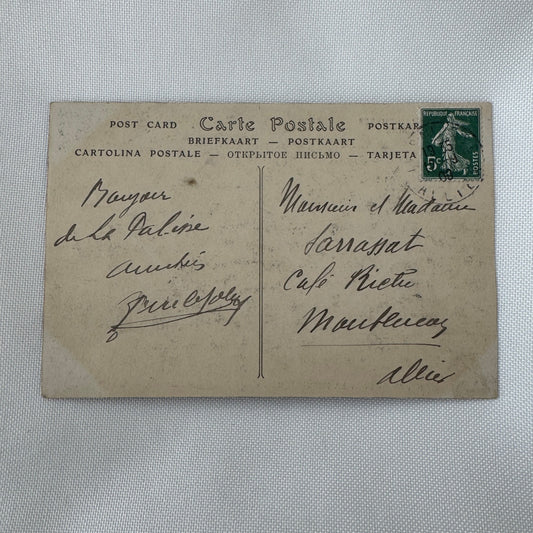 POST CARD Carte Postale POSTKAR
BRIEFKAART — POSTKAART
CARTOLINA POSTALE — ОТКРЫТОЕ ПИСЬМО — TARJETA
REPUBLIQUE FRANÇAISE
5c POSTES
Bonjour
de La Palisse
amitiés
Monsieur et Madame
Sarrassat
Café
Allier